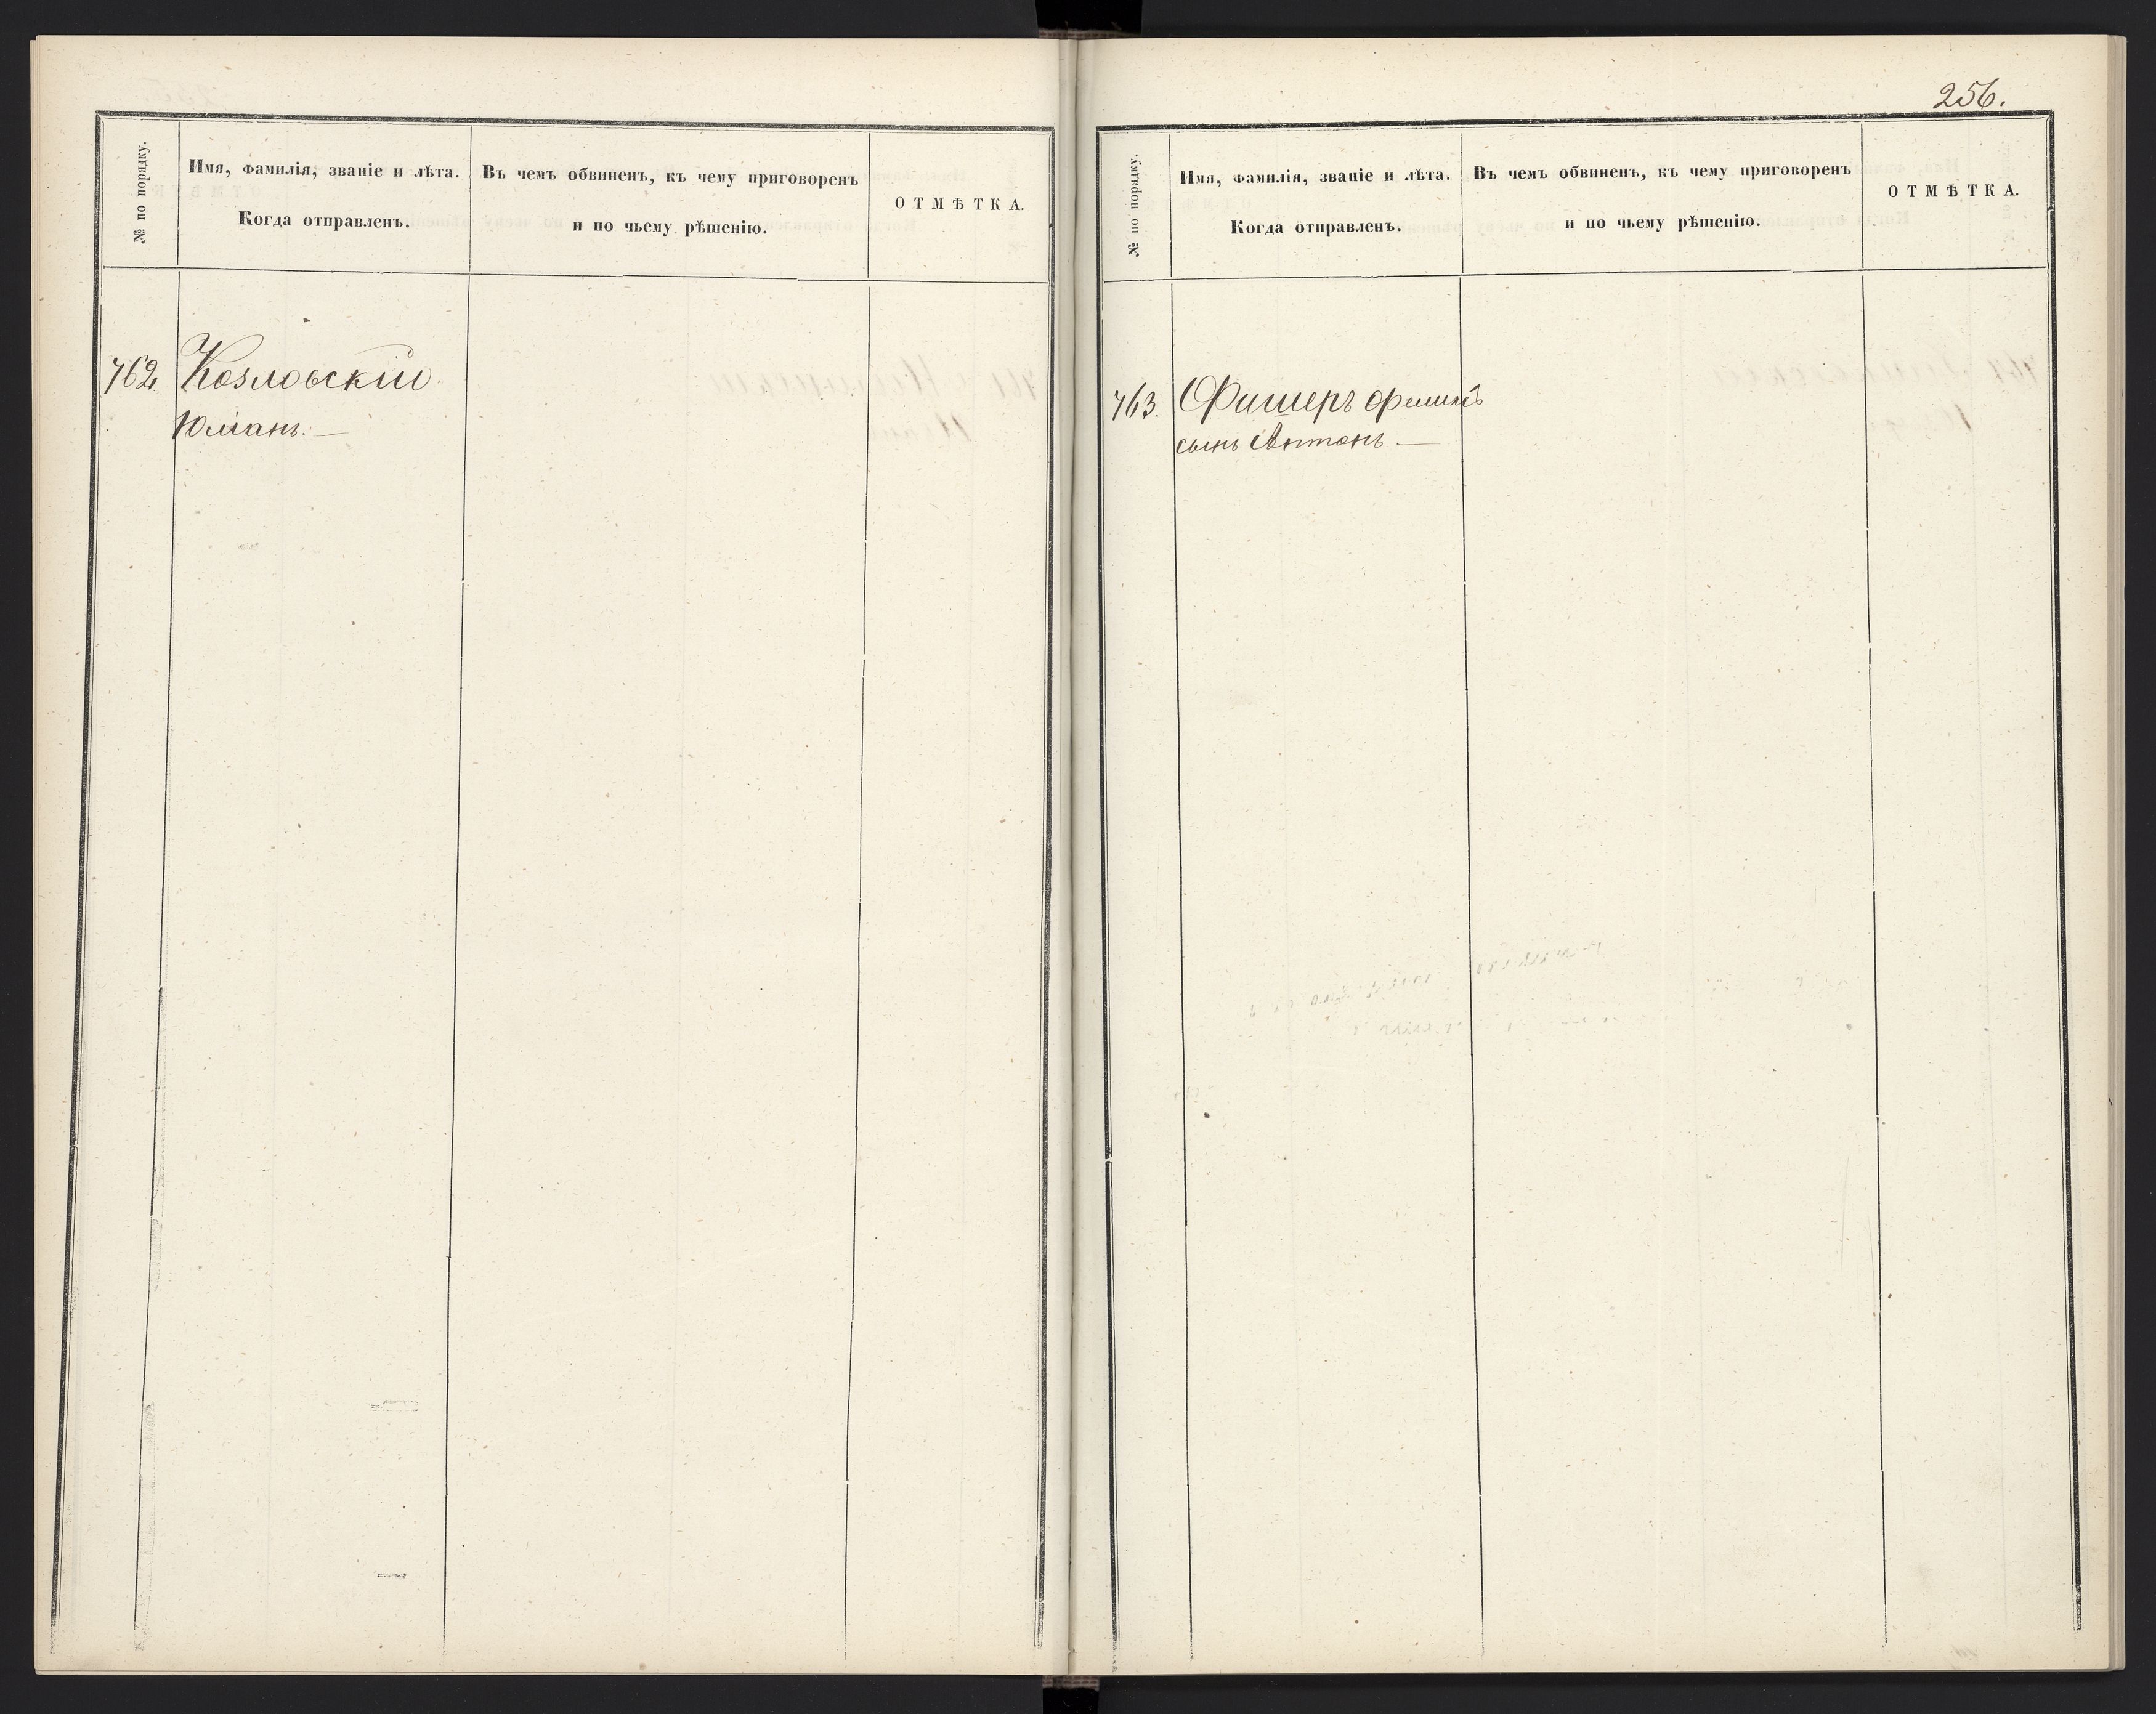 № по порядку.
Имя, фамилія, званіе и лѣта.
Когда отправленъ.
Въ чемъ обвиненъ, къ чему приговоренъ
и по чьему рѣшенію.
ОТМѢТКА.
762. Козловскій
Юліанъ. —
256.
№ по порядку.
Имя, фамилія, званіе и лѣта.
Когда отправленъ.
Въ чемъ обвиненъ, къ чему приговоренъ
и по чьему рѣшенію.
ОТМѢТКА.
763. Фишеръ
сынъ Антонъ. —